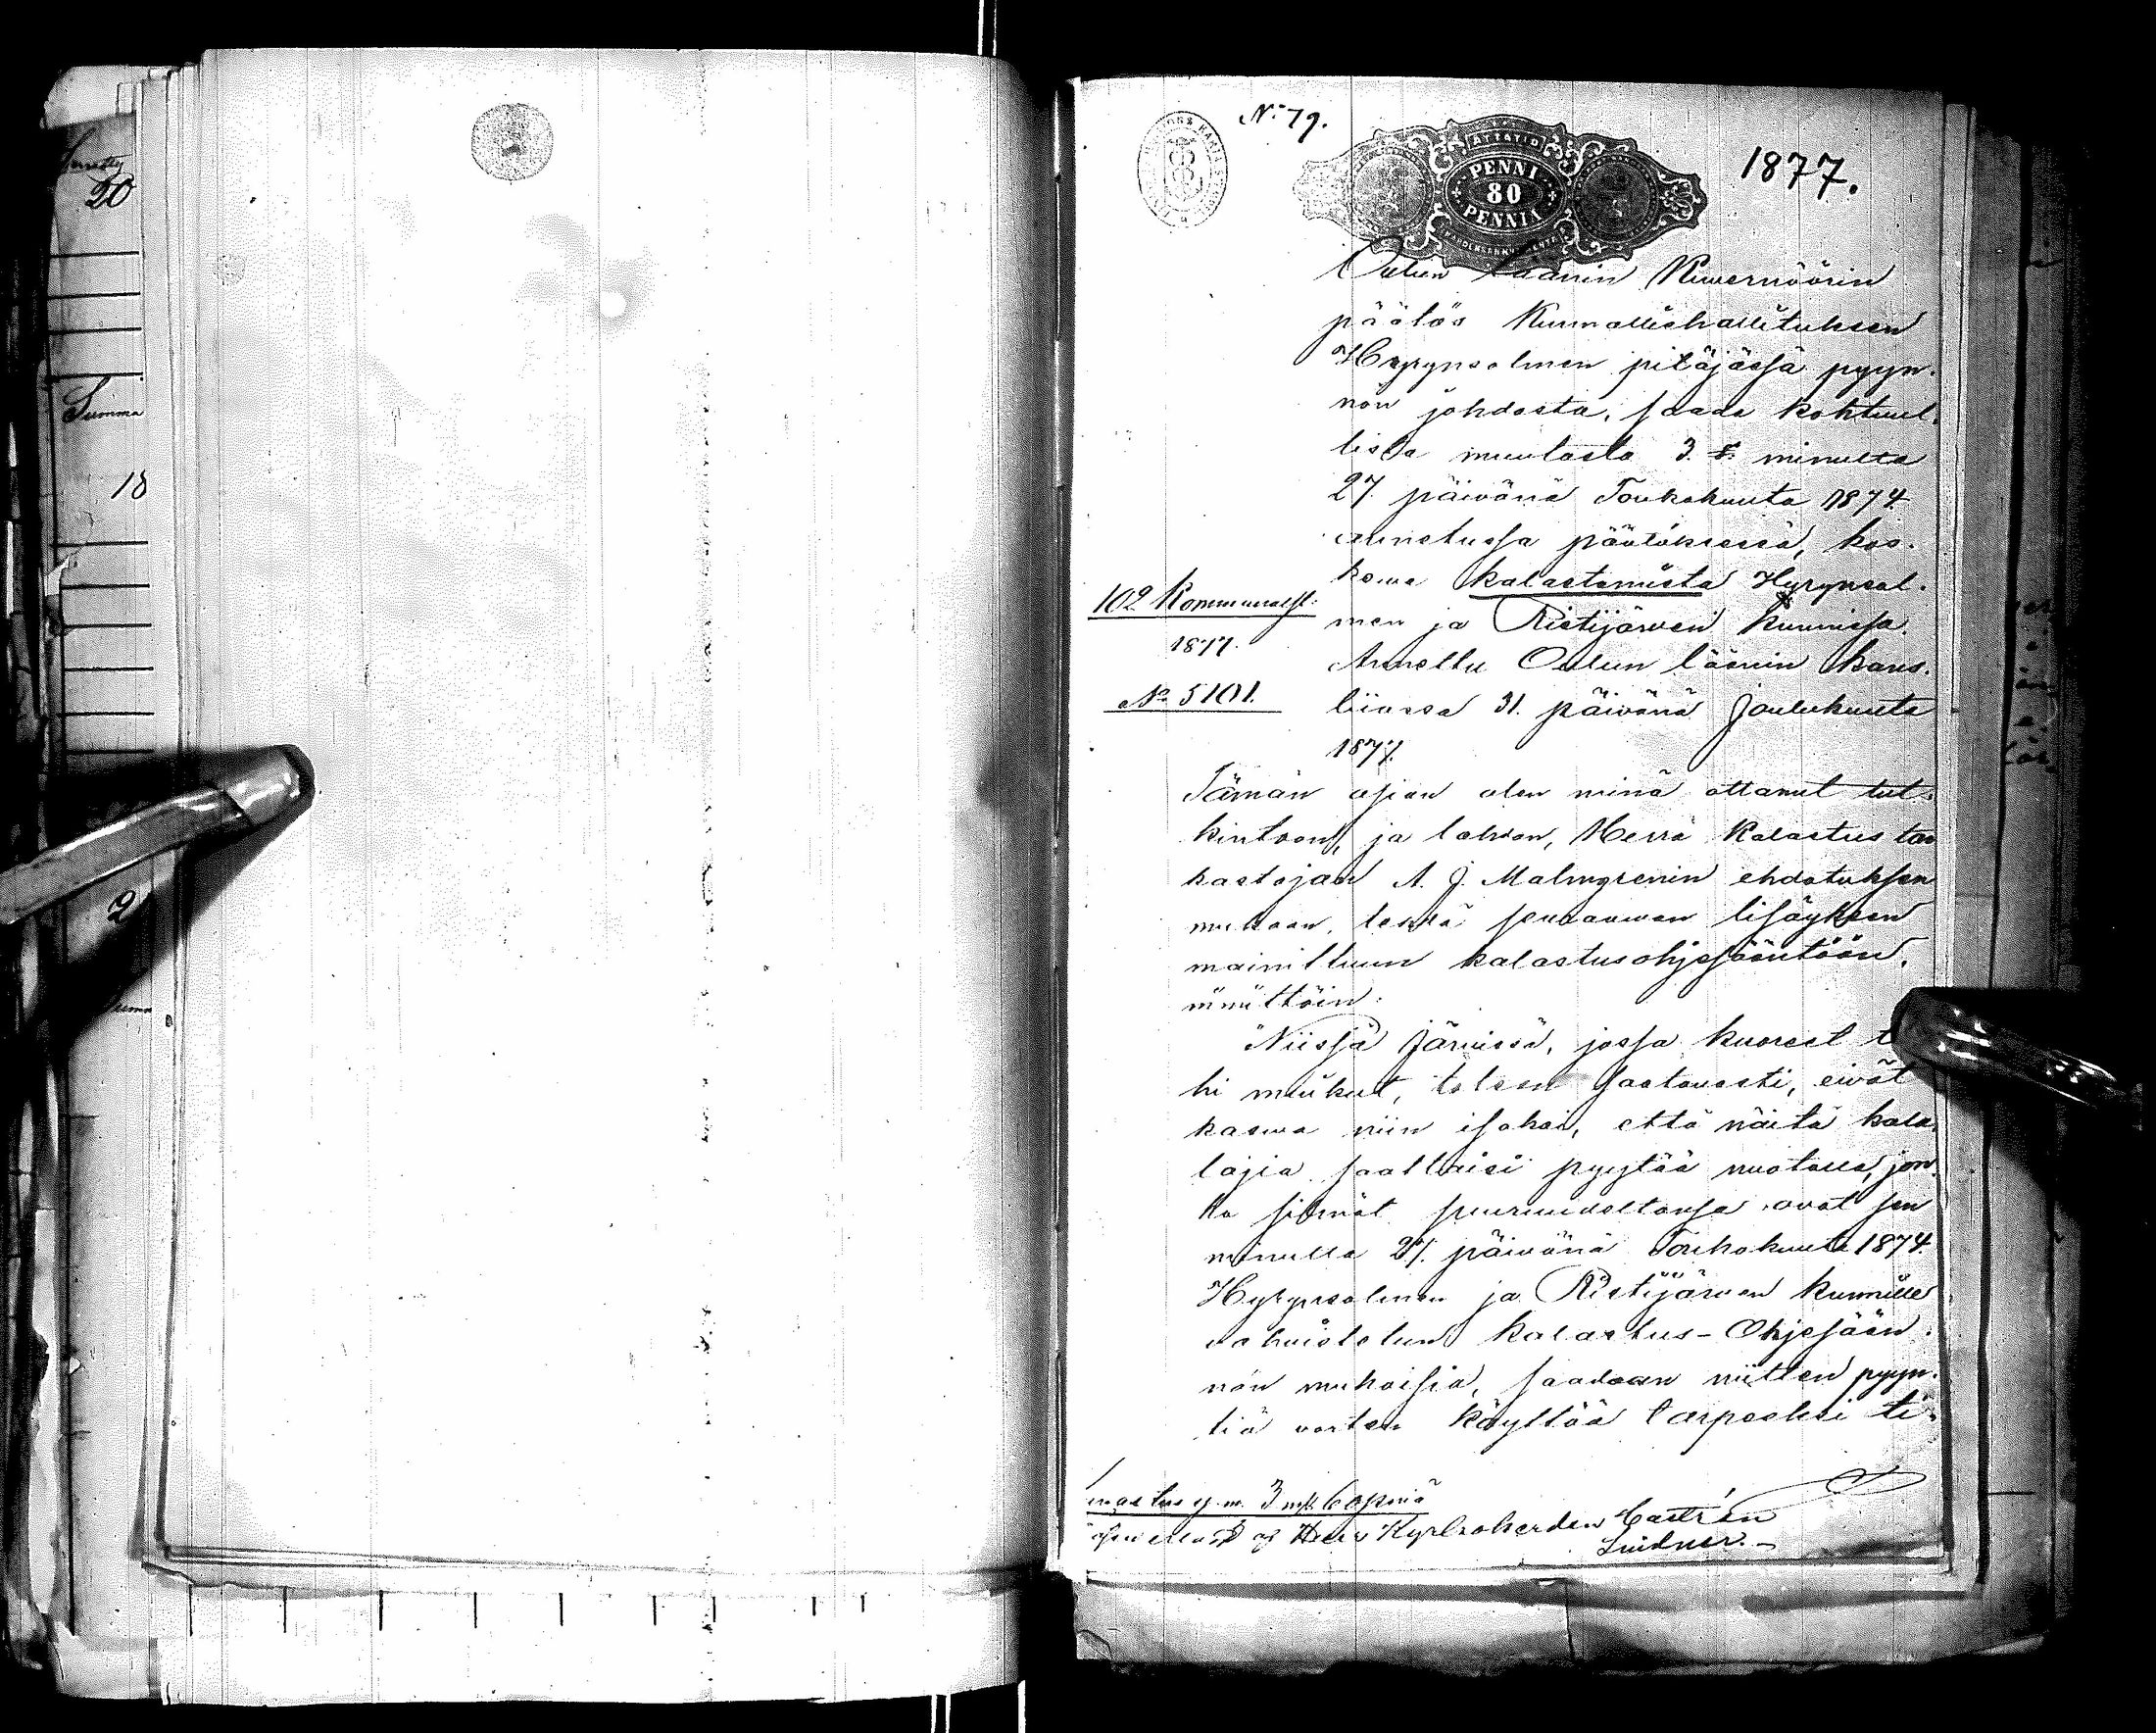 20
Summa
18
2
Summa
No 79.
1877.
PENNI
80
PENNIÄ
Oulun läänin Kuwernöörin
päätös Kunnallishallituksen
Hyrynsalmen pitäjässä pyyn-
nön johdosta, saada kohtuul-
lista muutosta 3. §. minulta
27. päiwänä Toukokuuta 1874
annetussa päätöksessä, kos-
kewa kalastamista Hyrynsal-
men ja Ristijärwen kunnissa.
Annettu Oulun läänin kans-
liiassa 31. päiwänä Joulukuuta
1877.
102 Kommunalst:
1877.
No 5101.
Tämän asian olen minä ottanut tut-
kintoon, ja tahdon, Herra Kalastus tar
kastajan A. J. Malmgrenin ehdotuksen
mukaan, tehdä seuraawan lisäyksen
mainittuun kalastusohjesääntöön,
nimittäin:
Niissä järwissä, jossa kuoreet
hi muikut, toteen saatawasti, eiwät
kaswa niin isoksi, että näitä kala-
lajia saattaisi pyytää nuotalla, jon-
ka silmät suuruudeltansa owat sen
minulla 27. päiwänä Toukokuuta 1874.
Hyrynsalmen ja Ristijärwen kunnille
wahwistetun Kalastus-Ohjesään-
nön mukaisia, saadaan niitten pyyn-
tiä warten käyttää tarpeeksi ti-
Lunastus y. m. 3 mk 60 penniä
af Herr Kyrkoherden Castrén
Lindner.